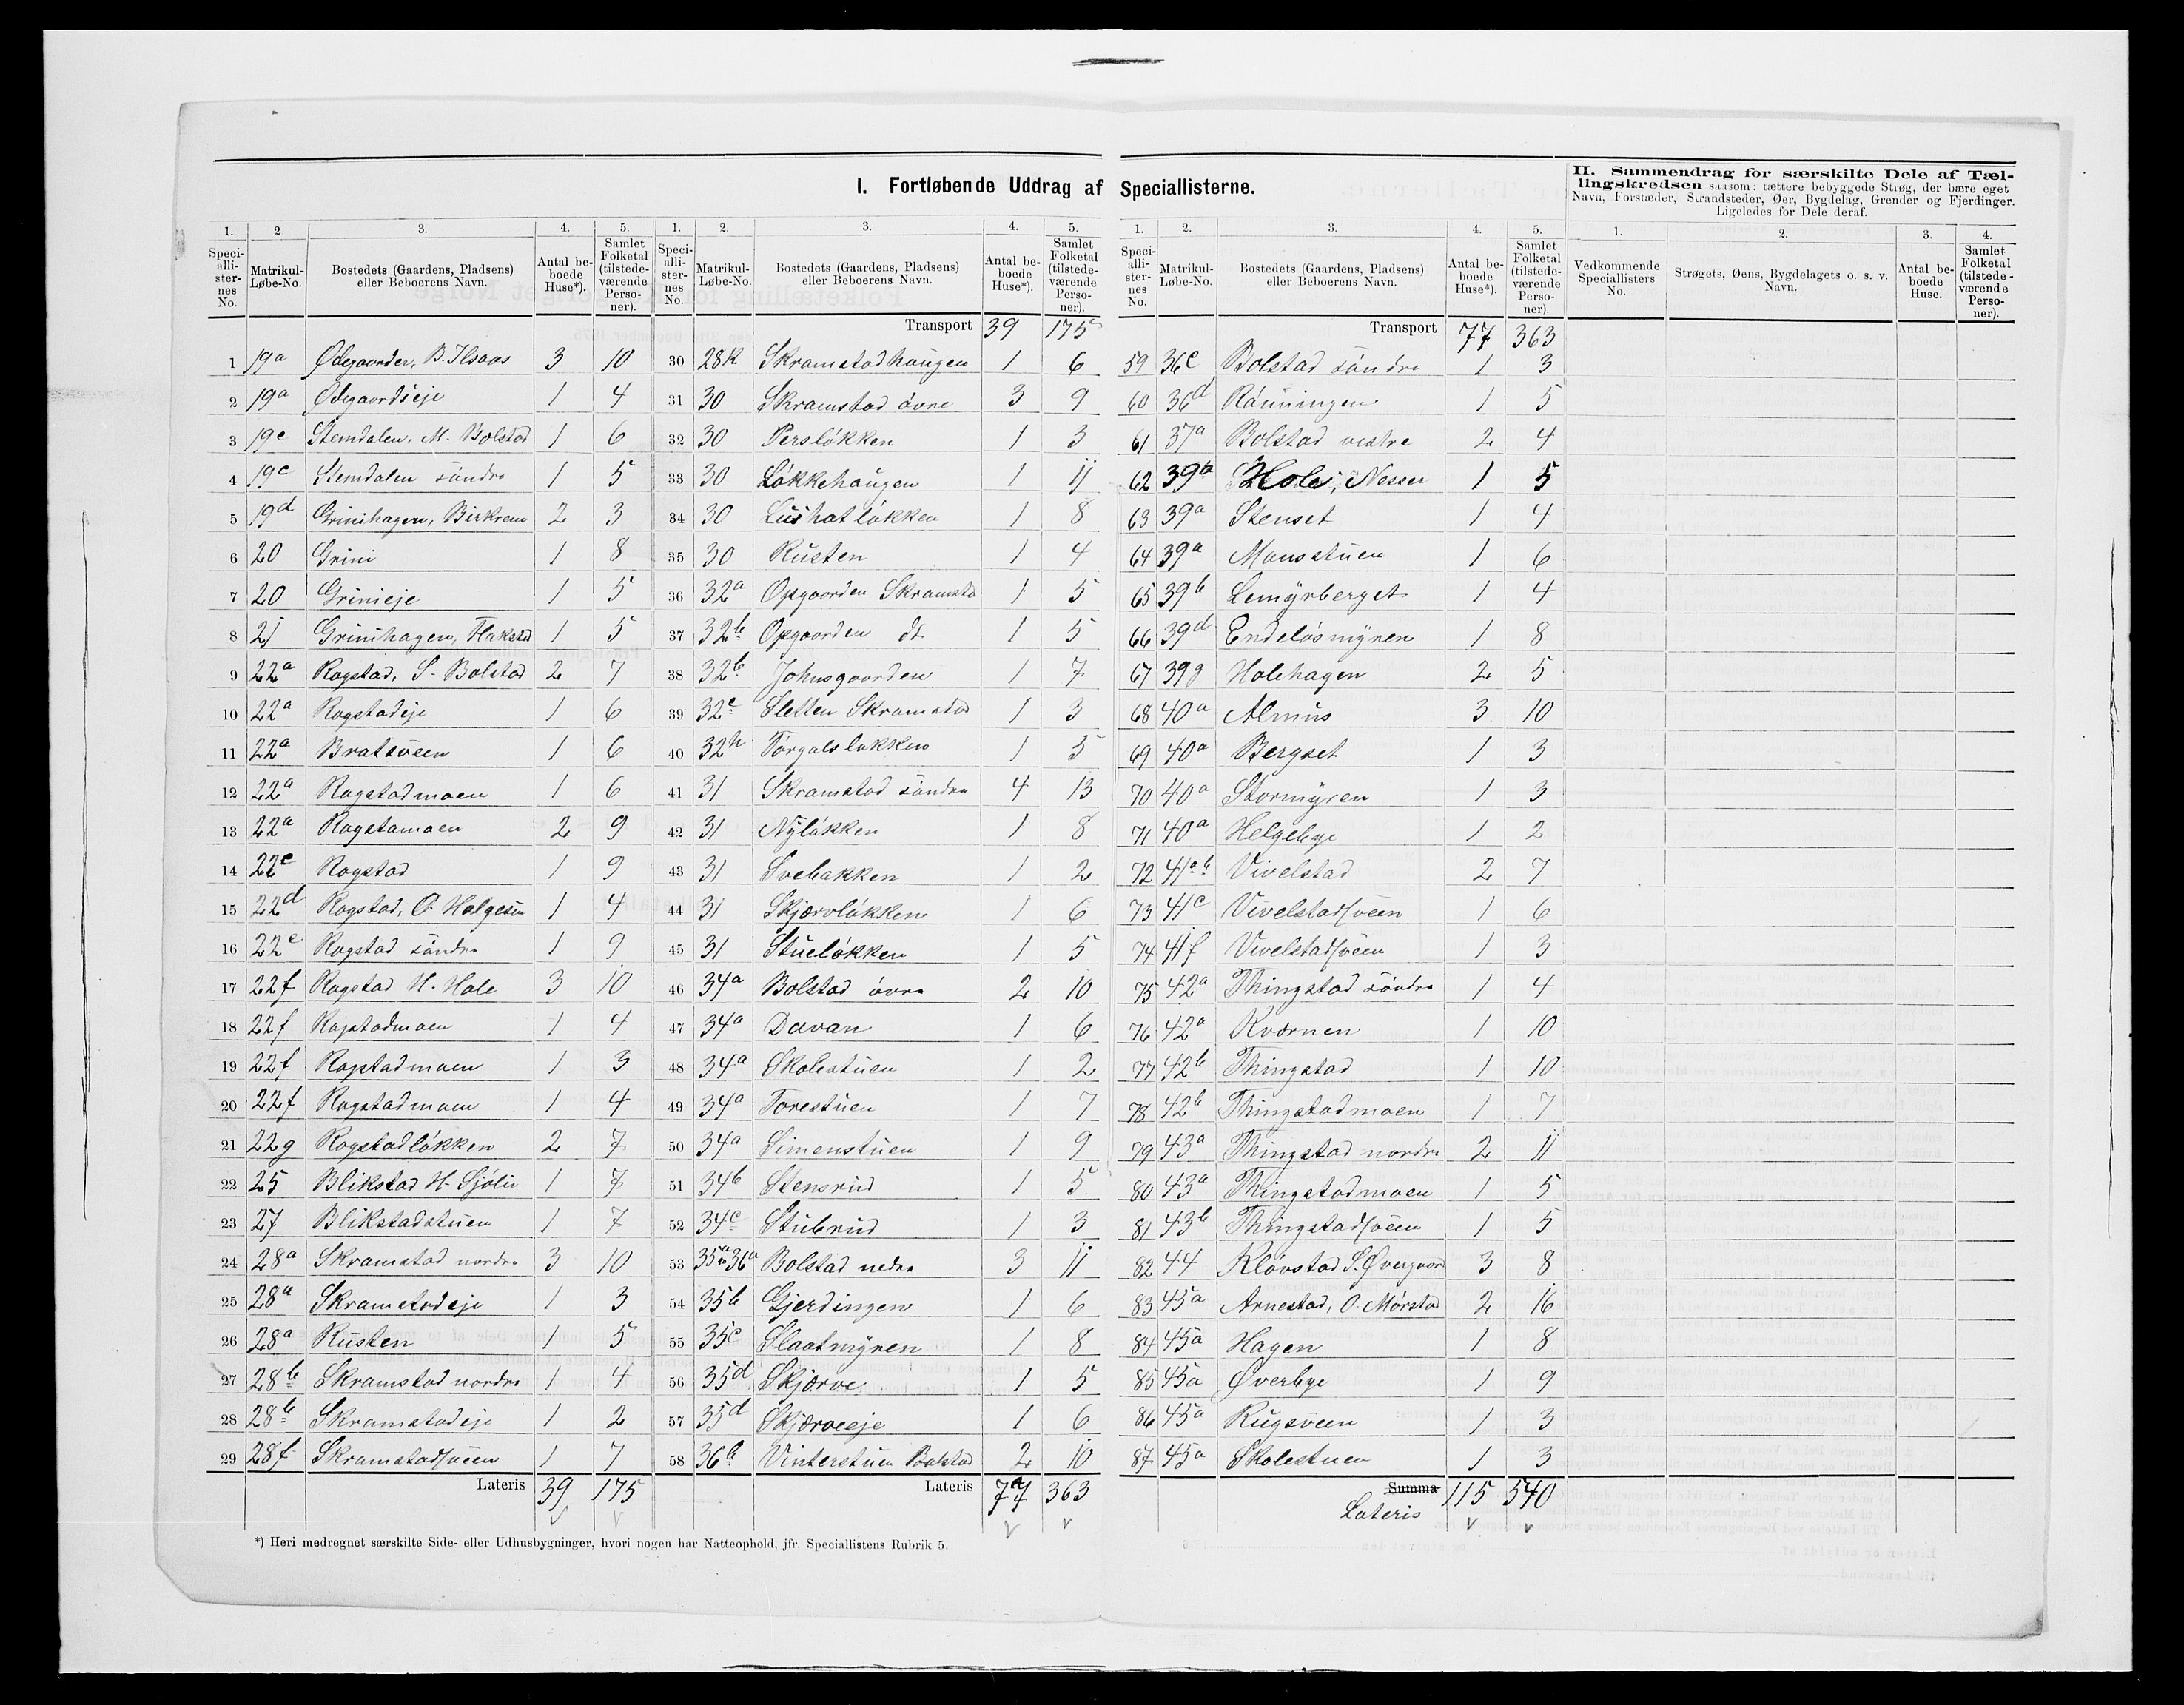 I. Fortløbende Uddrag af Speciallisterne.
II. Sammendrag for særskilte Dele af Tæl-
lingskredsen saasom: tættere bebyggede Strøg, der bære eget
Navn, Forstæder, Strandsteder, Øer, Bygdelag, Grender og Fjerdinger.
Ligeledes for Dele deraf.
1. 2 3. 4. 5.
Speci-alli-ster-nes No. Matrikul-Løbe-No. Bostedets (Gaardens, Pladsens) eller Beboerens Navn. Antal be-boede Huse*). Samlet Folketal (tilstede-værende Perso-ner).
1 19a Ødegaarden, B. Ilsaas 3 10
2 19a Ødegaardseje 1 4
3 19c Stemdalen, M. Bolstad 1 6
4 19c Stemdalen söndre 1 5
5 19d Grinihagen, Birkrem 2 3
6 20 Grini 1 8
7 20 Grinieje 1 5
8 21 Grinihagen, Flakstad 1 5
9 22a Rogstad, S. Bolstad 2 7
10 22a Rogstadeje 1 6
11 22a Bratsveen 1 6
12 22a Rogstadmoen 1 6
13 22a Rogstamoen 2 9
14 22c Rogstad 1 9
15 22d Rogstad, O. Helgesen 1 4
16 22e Rogstad söndre 1 9
17 22f Rogstad H. Hole 3 10
18 22f Rogstadmoen 1 4
19 22f Rogstadmoen 1 3
20 22f Rogstadmoen 1 4
21 22g Rogstadlökken 2 7
22 25 Blikstad H. Sjölie 1 7
23 27 Blikstadstuen 1 7
24 28a Skramstad nordre 3 10
25 28a Skramstadeje 1 3
26 28a Rusten 1 5
27 28b Skramstad nordre 1 4
28 28b Skramstadeje 1 2
29 28f Skramstadsveen 1 7
Lateris 39 175
1. 2. 3. 4. 5.
Speci-alli-ster-nes No. Matrikul-Løbe-No. Bostedets (Gaardens, Pladsens) eller Beboerens Navn. Antal be-boede Huse*). Samlet Folketal (tilstede-værende Perso-ner).
Transport 39 175
30 28k Skramstadhaugen 1 6
31 30 Skramstad övre 3 9
32 30 Perslökken 1 3
33 30 Lökkehaugen 1 11
34 30 Lushatlökken 1 8
35 30 Rusten 1 4
36 32a Opgaarden Skramsta 1 5
37 32b Opgaarden dt 1 5
38 32b Johnsgaarden 1 7
39 32c Sletten Skramstad 1 3
40 32h Torgalslökken 1 5
41 31 Skramstad söndre 4 13
42 31 Nylökken 1 8
43 31 Svebakken 1 2
44 31 Skjærvlökken 1 6
45 31 Stuelökken 1 5
46 34a Bolstad övre 2 10
47 34a Davan 1 6
48 34a Skolestuen 1 2
49 34a Torestuen 1 7
50 34a Simenstuen 1 9
51 34b Stensrud 1 5
52 34c Stubrud 1 3
53 35a 36a Bolstad nedre 3 11
54 35b Gjerdingen 1 6
55 35c Slaatmyren 1 8
56 35d Skjærve 1 5
57 35d Skjærveeje 1 6
58 36b Vinterstuen Bolstad 2 10
Lateris 77 363
*) Heri medregnet særskilte Side- eller Udhusbygninger, hvori nogen har Natteophold, jfr. Speciallistens Rubrik 5.
1. 2. 3. 4. 5.
Speci-alli-ster-nes No. Matrikul-Løbe-No. Bostedets (Gaardens, Pladsens) eller Beboerens Navn. Antal be-boede Huse*). Samlet Folketal (tilstede-værende Perso-ner).
Transport 77 363
59 36c Bolstad söndre 1 3
60 36d Rönningen 1 5
61 37a Bolstad vestre 2 4
62 39a Hole, Nesser 1 5
63 39a Stenset 1 4
64 39a Monsstuen 1 6
65 39b Lemyrberget 1 4
66 39d Endelösmyren 1 8
67 39g Holehagen 2 5
68 40a Almus 3 10
69 40a Bergset 1 3
70 40a Stormyren 1 3
71 40a Helgebye 1 2
72 41a.b Vivelstad 2 7
73 41c Vivelstadsveen 1 6
74 41f Vivelstadsveen 1 3
75 42a Thingstad söndre 1 4
76 42a Kværnen 1 10
77 42b Thingstad 1 10
78 42b Thingstadmoen 1 7
79 43a Thingstad nordre 2 11
80 43a Thingstadmoen 1 5
81 43b Thingstadsveen 1 5
82 44 Klövstad S. Øvergaard 3 8
83 45a Arnestad, O. Mörstad 2 16
84 45a Hagen 1 8
85 45a Øverbye 1 9
86 45a Rugsveen 1 3
87 45a Skolestuen 1 3
Summa 115 540
Lateris
1. 2. 3. 4.
Vedkommende Speciallisters No. Strøgets, Øens, Bygdelagets o. s. v. Navn. Antal be-boede Huse. Samlet Folketal (tilstede-værende Perso-ner).